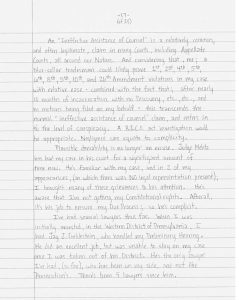 -17-
An "Ineffective Assistance of Counsel" is a relatively common,
and often legitimate, claim in many Courts, including Appellate
Courts, all around our Nation. And considering that, me, a
blue-collar tradesman could likely prove 1st, 2nd, 4th, 5th,
6th, 8th, 10th, and 14th Amendment violations in my case
with relative ease - combined with the fact that, after nearly
16 months of incarceration, with no Discovery, etc., etc., and
no motions being filed on my behalf - this transcends the
normal "ineffective assistance of counsel" claim, and enters in
to the level of conspiracy. A R.I.C.O. act investigation would
be appropriate. Negligence can equate to complicity.
Plausible deniability is no longer an excuse. Judge
has had my case in his court for a significant amount of
time now. He's familiar with my case, and in 2 of my
appearances, (in which there was NO legal representation present),
I brought many of these grievances to his attention. He's
aware that I'm not getting my Constitutional rights. Afterall,
it's his job to ensure my Due Process, so he's complicit.
I've had several lawyers thus far. When I was
initially arrested, in the Western District of Pennsylvania, I
had Jay J. Finkelstein who handled my Preliminary Hearing.
He did an excellent job, but was unable to stay on my case
once I was taken out of his District. He's the only lawyer
I've had, (so far), who has been on my side, and not the
Prosecution's. There's been 4 lawyers since him.